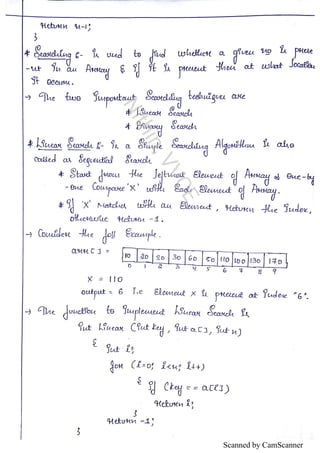 return n-1;
}
* Searching :- It is used to find whether a given no is prese
-nt in an Array & if it is present then at what location
it occurs.
→ The two Important Searching techniques are
* Linear Search
* Binary Search
* Linear Search :- Is a Simple Searching Algorithm is also
called as Sequential Search.
* Start from the leftmost Element of Array & One-by
-one Compare 'X' with Each Element of Array.
* If 'X' Matches with an Element, return the Index,
otherwise return -1.
→ Consider the foll Example.
arr[ ] = 10 20 80 30 60 50 110 100 130 170
0 1 2 3 4 5 6 7 8 9
X = 110
output = 6 i.e Element X is present at Index "6".
→ The function to Implement Linear Search is
int Linear (int key, int a[ ], int n)
{ int i;
for (i=0; i<n; i++)
{ if (key == a[i])
return i;
}
return -1;
}
Scanned by CamScanner